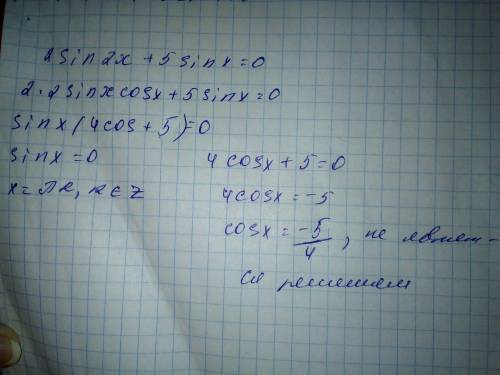 2sin2x + 5sinx = 0
2·2sinxcosx + 5sinx = 0
sinx(4cos + 5) = 0
sinx = 0
x = πk, k ∈ Z
4cosx + 5 = 0
4cosx = -5
cosx = -5/4, не являет-
ся решением